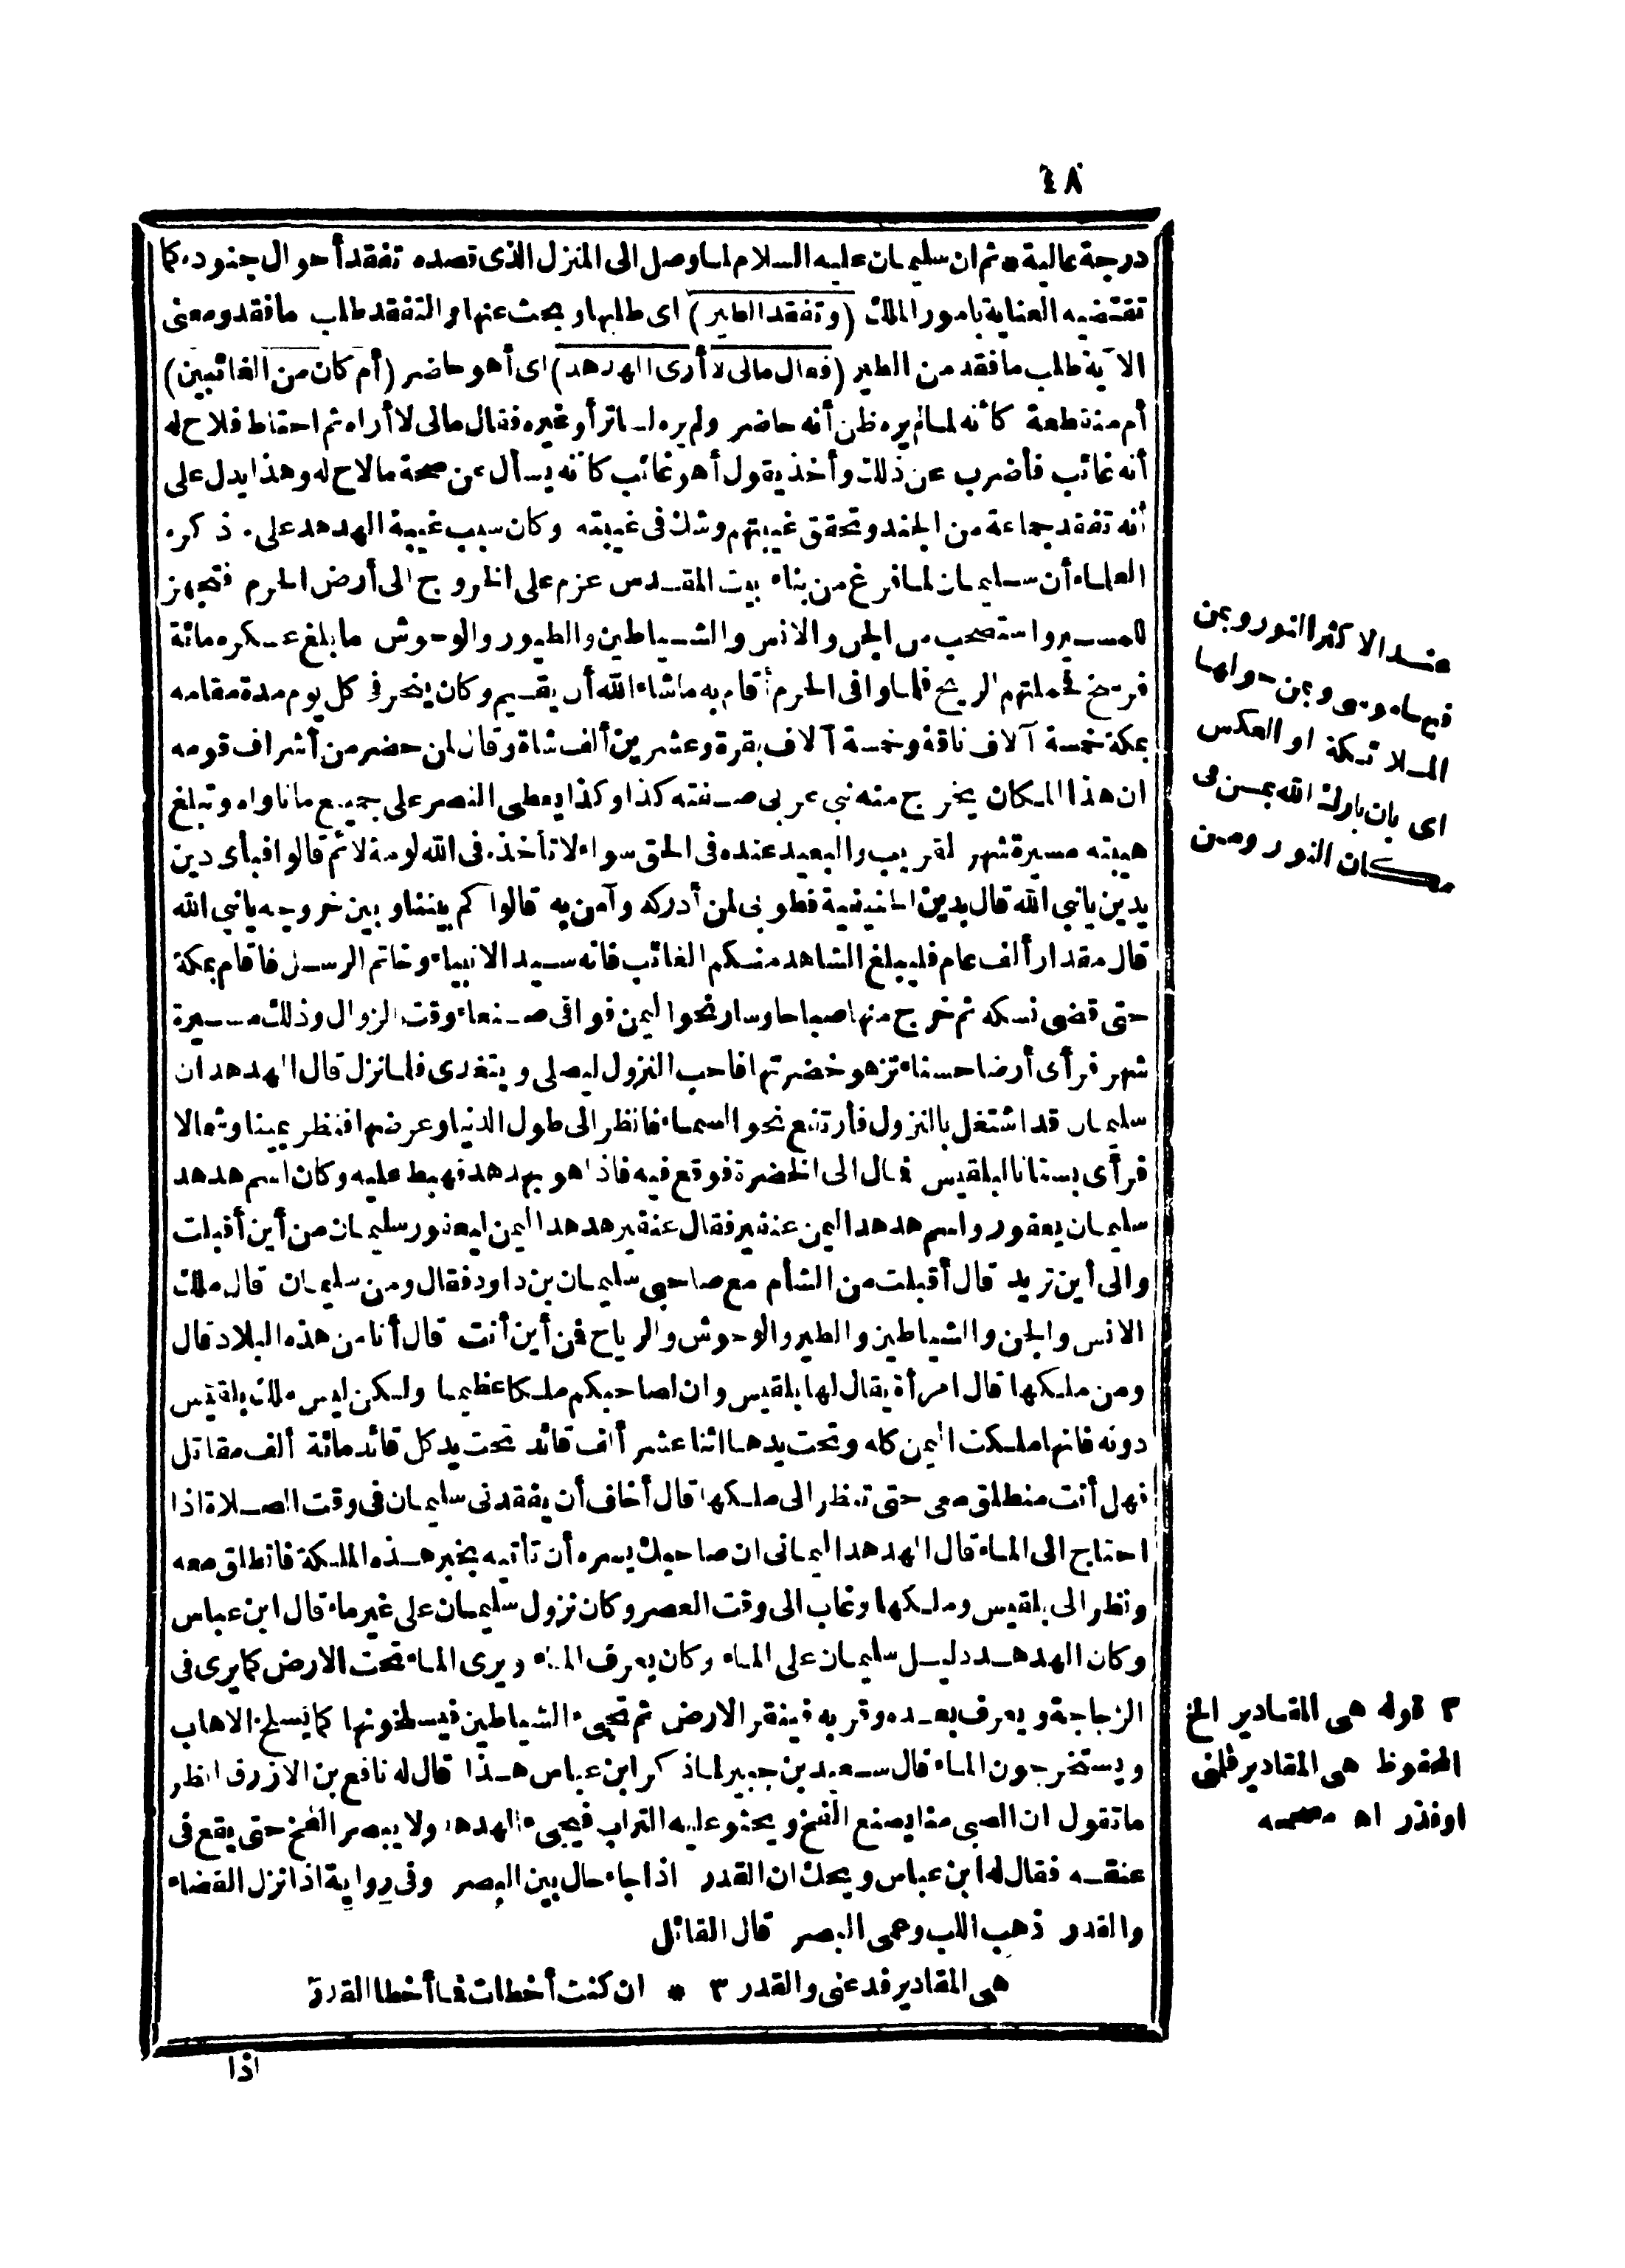 ٤٨
درجة عالية * ثم ان سليمان عليه السلام لما وصل الى المنزل الذى قصده تفقد أحوال جنوده كما
تقتضيه العناية بامور الملك (وتفقد الطير) اى طلبها وبحث عنها والتفقد طلب ما فقد ومعنى
الآية طلب ما فقد من الطير (فقال مالى لا أرى الهدهد) اى أهو حاضر (أم كان من الغائبين)
أم منقطعة كأنه لما لم يره ظن أنه حاضر ولم يره لساتر أو غيره فقال مالى لا أراه ثم احتاط فلاح له
أنه غائب فأضرب عن ذلك وأخذ يقول أهو غائب كأنه يسأل عن صحة ما لاح له وهذا يدل على
أنه تفقد جماعة من الجند وتحقق غيبتهم وشك فى غيبته وكان سبب غيبة الهدهد على ما ذكره
العلماء أن سليمان لما فرغ من بناء بيت المقدس عزم على الخروج الى أرض الحرم فتجهز
للمسير واستصحب من الجن والانس والشياطين والطيور والوحوش ما بلغ عسكره مائة
فرسخ فحملتهم الريح فلما وافى الحرم أقام به ما شاء الله أن يقيم وكان ينحر فى كل يوم مدة مقامه
بمكة خمسة آلاف ناقة وخمسة آلاف بقرة وعشرين ألف شاة وقال لمن حضر من أشراف قومه
ان هذا المكان يخرج منه نبى عربى صفته كذا وكذا يعطى النصر على جميع ما ناواه وتبلغ
هيبته مسيرة شهر لقريب والبعيد عنده فى الحق سواء لا تأخذه فى الله لومة لائم قالوا فبأى دين
يدين يا نبى الله قال بدين الحنيفية فطوبى لمن أدركه وآمن به قالوا كم بيننا وبين خروجه يا نبى الله
قال مقدار ألف عام فليبلغ الشاهد منكم الغائب فانه سيد الانبياء وخاتم الرسل فاقام بمكة
حتى قضى نسكه ثم خرج منها صباحا وسار نحو اليمن فوافى صنعاء وقت الزوال وذلك مسيرة
شهر فرأى أرضا حسناء تزهو خضرتها فاحب النزول ليصلى ويتغدى فلما نزل قال الهدهد ان
سليمان قد اشتغل بالنزول فأرتفع نحو السماء فانظر الى طول الدنيا وعرضها فنظر يمينا وشمالا
فرأى بستانا لبلقيس فمال الى الخضرة فوقع فيه فاذا هو بهدهد فهبط عليه وكان اسم هدهد
سليمان يعفور واسم هدهد اليمن عنقير فقال عنقير هدهد اليمن ليعفور سليمان من أين أقبلت
والى أين تريد قال أقبلت من الشأم مع صاحبى سليمان بن داود فقال ومن سليمان قال ملك
الانس والجن والشياطين والطير والوحوش والرياح فمن أين أنت قال أنا من هذه البلاد قال
ومن ملكها قال امرأة يقال لها بلقيس وان لصاحبكم ملكا عظيما ولكن ليس ملك بلقيس
دونه فانها ملكت اليمن كله وتحت يدها اثنا عشر ألف قائد تحت يد كل قائد مائة ألف مقاتل
فهل أنت منطلق معى حتى تنظر الى ملكها قال أخاف أن يفقدنى سليمان فى وقت الصلاة اذا
احتاج الى الماء قال الهدهد اليمانى ان صاحبك يسره أن تأتيه بخبر هذه الملكة فانطلق معه
ونظر الى بلقيس وملكها وغاب الى وقت العصر وكان نزول سليمان على غير ماء قال ابن عباس
وكان الهدهد دليل سليمان على الماء وكان يعرف الماء ويرى الماء تحت الارض كما يرى فى
الزجاجة ويعرف بعده وقربه فينقر الارض ثم تجىء الشياطين فيسلخونها كما يسلخ الاهاب
ويستخرجون الماء قال سعيد بن جبير لما ذكر ابن عباس هذا قال له نافع بن الازرق انظر
ما تقول ان الصبى منا يصنع الفخ ويحثو عليه التراب فيجىء الهدهد ولا يبصر الفخ حتى يقع فى
عنقه فقال له ابن عباس ويحك ان القدر اذا جاء حال بين البصر وفى رواية اذا نزل القضاء
والقدر ذهب اللب وعمى البصر قال القائل
هى المقادير فدعنى والقدر ٣ * ان كنت أخطات فما أخطا القدر
اذا
عند الاكثر النور وبمن
فيها موسى وبمن حولها
الملائكة او العكس
اى بان بارك الله بمن فى
مكان النور ومن
٣ قوله هى المقادير الخ
المحفوظ هى المقادير فلمنى
اوفذر اه مصححه